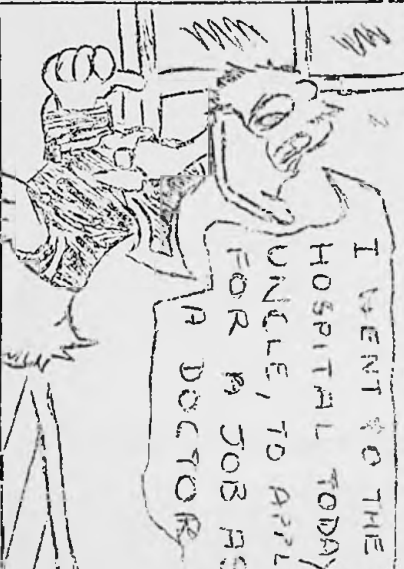 I WENT TO THE
HOSPITAL TODAY
UNCLE, TO APPL
FOR A JOB AS
A DOCTOR